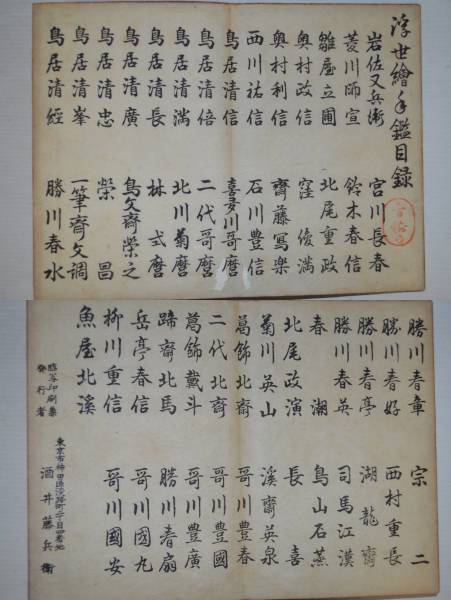 浮世繪手鑑目録
岩佐又兵衛 宮川長春
菱川師宣 鈴木春信
雛屋立圃 北尾重政
奥村政信 窪俊満
奥村利信 齋藤寫樂
西川祐信 石川豊信
鳥居清信 喜多川哥麿
鳥居清倍 二代哥麿
鳥居清満 北川菊麿
鳥居清長 林式麿
鳥居清廣 鳥文齋榮之
鳥居清忠 榮昌
鳥居清峯 一筆齋文調
鳥居清經 勝川春水
勝川春章 宗二
勝川春好 西村重長
勝川春亭 湖龍齋
勝川春英 司馬江漢
春潮 鳥山石燕
北尾政演 長喜
菊川英山 溪齋英泉
葛飾北齋 哥川豊春
二代北齋 哥川豊國
葛飾戴斗 哥川豊廣
蹄齋北馬 勝川春扇
岳亭春信 哥川國丸
柳川重信 哥川國安
魚屋北溪
印刷兼
発行者
東京市神田區淡路町二丁目四番地
酒井藤兵衛